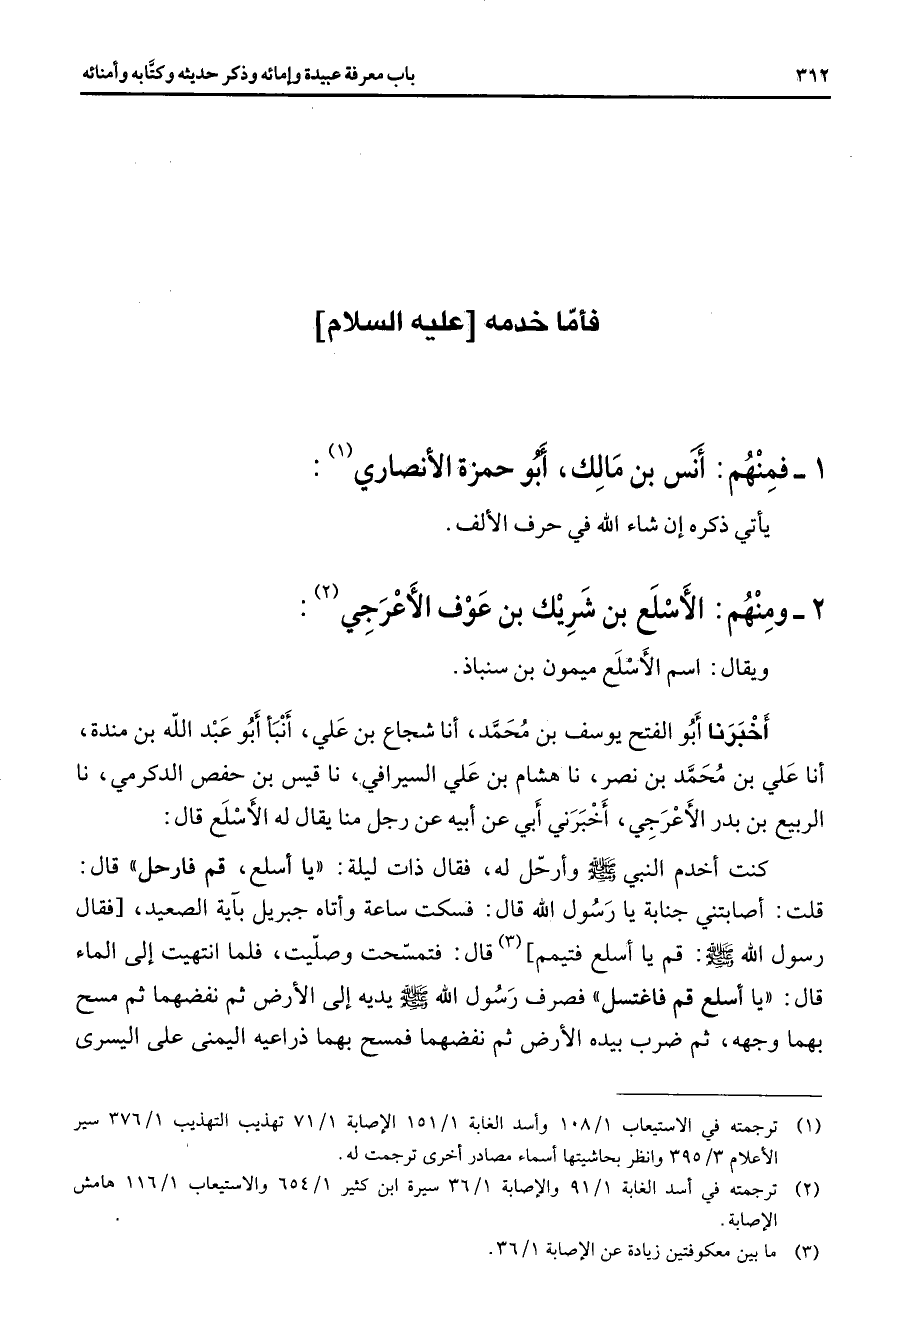 ٣١٢ باب معرفة عبيدة وإمائه وذكر حديثه وكتَّابه وأمنائه
فأمّا خدمه [عليه السلام]
١ ـ فمِنْهُم: أَنَس بن مَالِك، أَبُو حمزة الأنصاري(١):
يأتي ذكره إن شاء الله في حرف الألف.
٢ ـ ومِنْهُم: الأَسْلَع بن شَرِيْك بن عَوْف الأَعْرَجي(٢):
ويقال: اسم الأَسْلَع ميمون بن سنباذ.
أَخْبَرَنا أَبُو الفتح يوسف بن مُحَمَّد، أنا شجاع بن عَلي، أَنْبَأ أَبُو عَبْد اللّه بن مندة،
أنا عَلي بن مُحَمَّد بن نصر، نا هشام بن عَلي السيرافي، نا قيس بن حفص الدكرمي، نا
الربيع بن بدر الأَعْرَجي، أَخْبَرَني أَبي عن أبيه عن رجل منا يقال له الأَسْلَع قال:
كنت أخدم النبي ﷺ وأرحّل له، فقال ذات ليلة: «يا أسلع، قم فارحل» قال:
قلت: أصابتني جنابة يا رَسُول الله قال: فسكت ساعة وأتاه جبريل بآية الصعيد، [فقال
رسول الله ﷺ: قم يا أسلع فتيمم](٣) قال: فتمسّحت وصلّيت، فلما انتهيت إلى الماء
قال: «يا أسلع قم فاغتسل» فصرف رَسُول الله ﷺ يديه إلى الأرض ثم نفضهما ثم مسح
بهما وجهه، ثم ضرب بيده الأرض ثم نفضهما فمسح بهما ذراعيه اليمنى على اليسرى
(١) ترجمته في الاستيعاب ١٠٨/١ وأسد الغابة ١٥١/١ الإصابة ٧١/١ تهذيب التهذيب ٣٧٦/١ سير
الأعلام ٣٩٥/٣ وانظر بحاشيتها أسماء مصادر أخرى ترجمت له.
(٢) ترجمته في أسد الغابة ٩١/١ والإصابة ٣٦/١ سيرة ابن كثير ٦٥٤/١ والاستيعاب ١١٦/١ هامش
الإصابة.
(٣) ما بين معكوفتين زيادة عن الإصابة ٣٦/١.